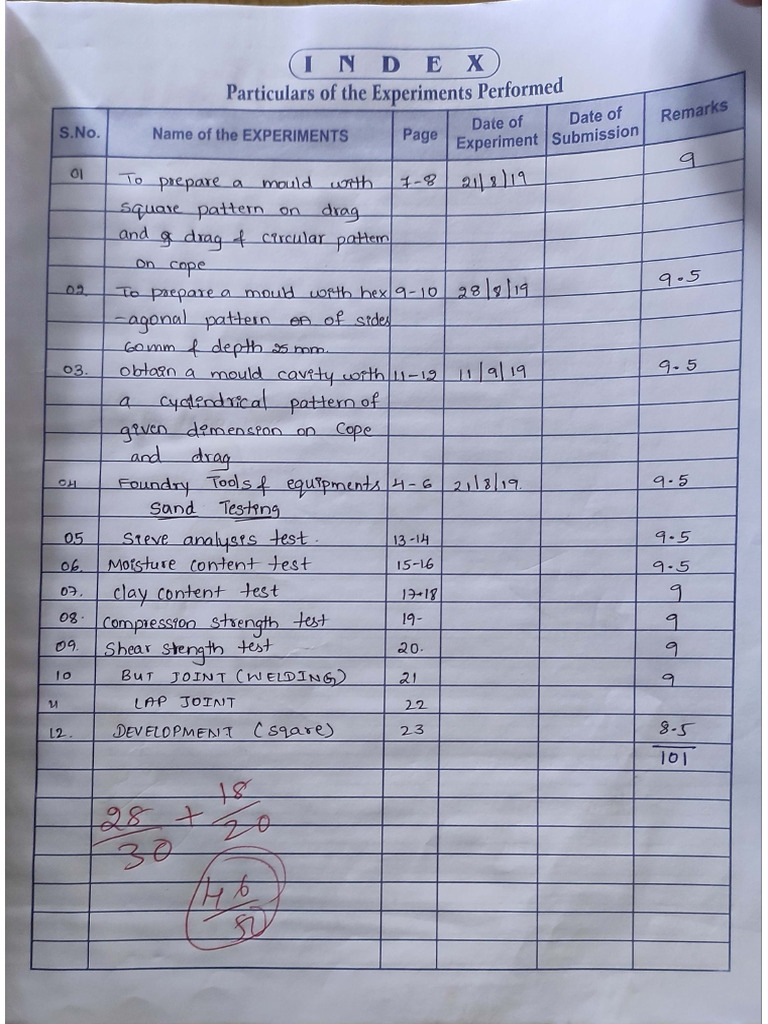 INDEX
Particulars of the Experiments Performed
S.No. Name of the EXPERIMENTS Page Date of Experiment Date of Submission Remarks
01 To prepare a mould with 7-8 21/8/19 9
square pattern on drag
and drag & circular pattern
on cope
02 To prepare a mould with hex 9-10 28/8/19 9.5
-agonal pattern of sides
60mm & depth 25mm.
03. Obtain a mould cavity with 11-12 11/9/19 9.5
a cyclindrical pattern of
given dimension on Cope
and drag
04 Foundry Tools & equipments 4-6 21/8/19. 9.5
Sand Testing
05 Sieve analysis test. 13-14 9.5
06. Moisture content test 15-16 9.5
07. clay content test 17-18 9
08. Compression strength test 19- 9
09. Shear stength test 20. 9
10 BUT JOINT (WELDING) 21 9
11 LAP JOINT 22
12. DEVELOPMENT (sqare) 23 8.5
101
28/30 + 18/20
46/50